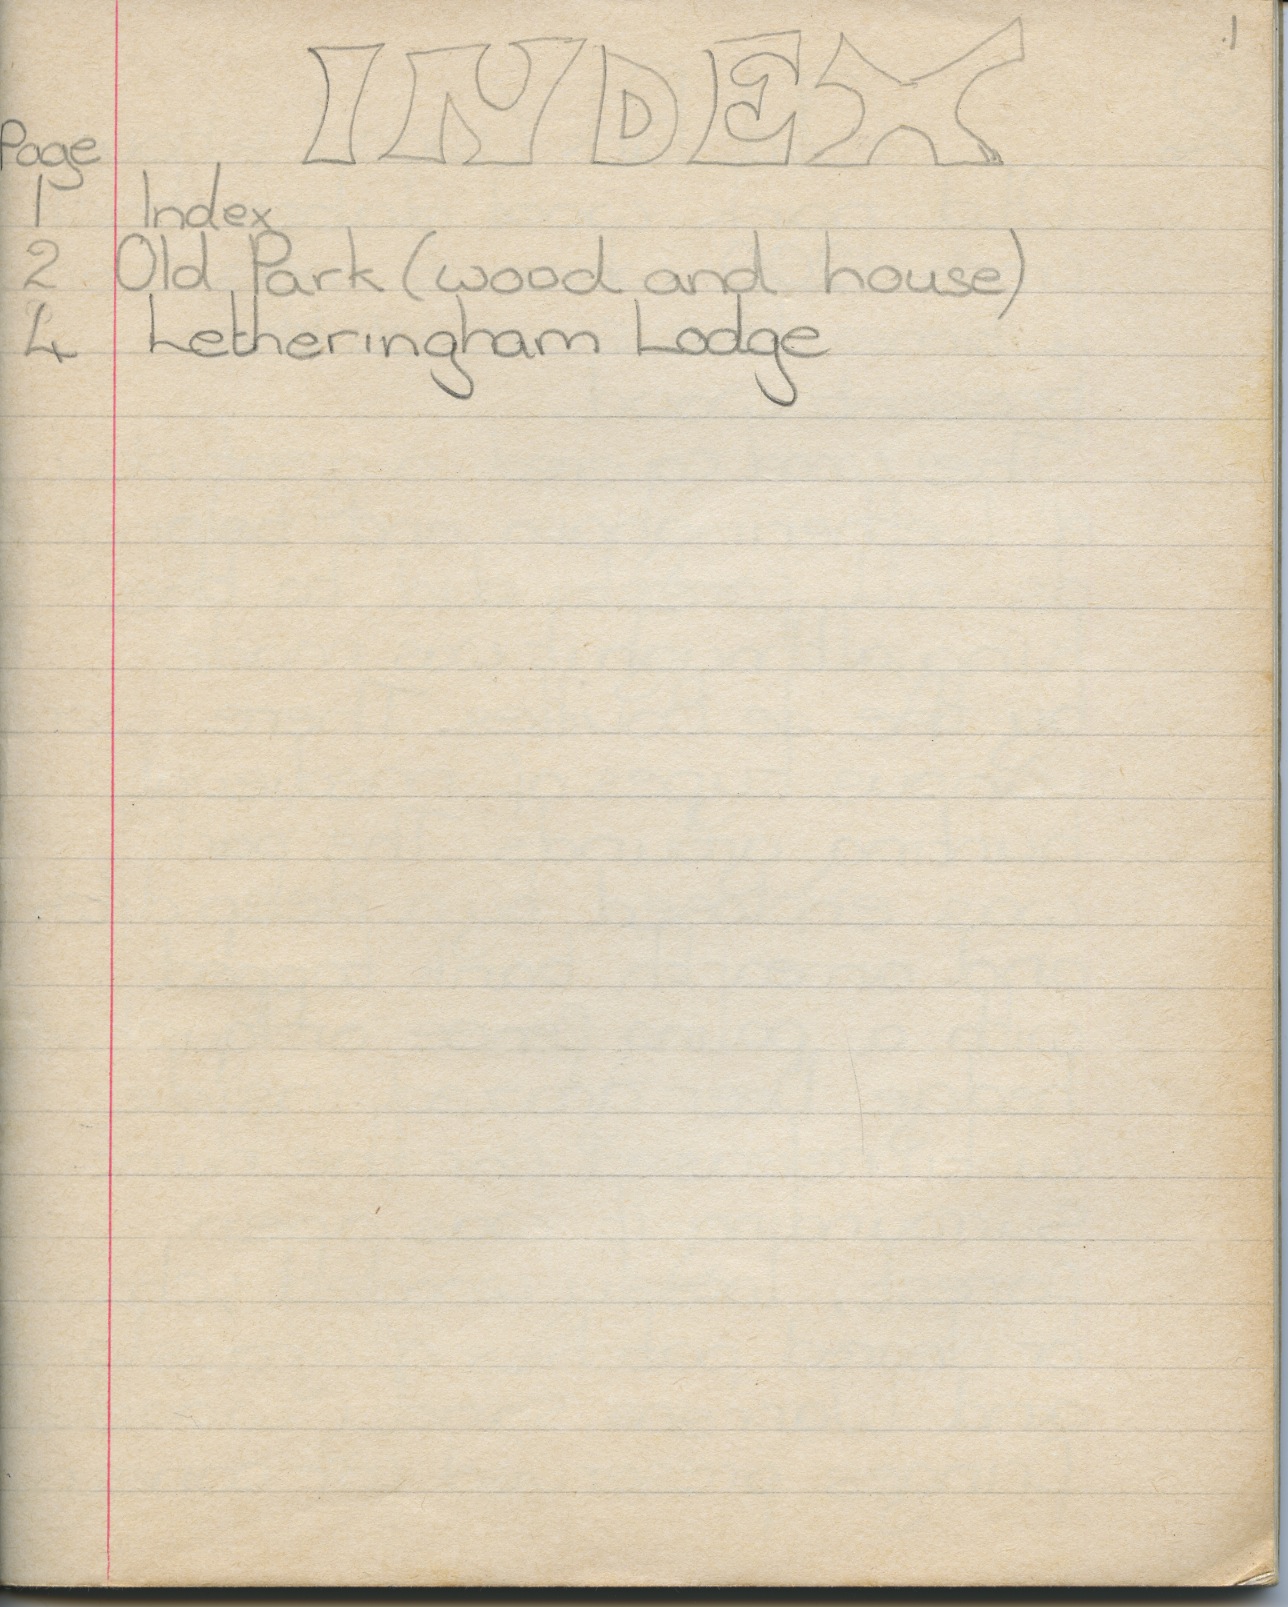 1
INDEX
Page
1 Index
2 Old Park (wood and house)
4 Letheringham Lodge